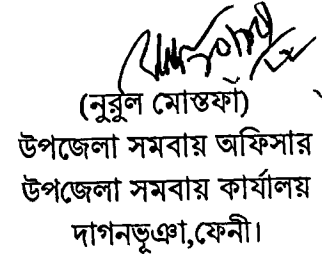 (নুরুল মোস্তফা)
উপজেলা সমবায় অফিসার
উপজেলা সমবায় কার্যালয়
দাগনভূঞা,ফেনী।